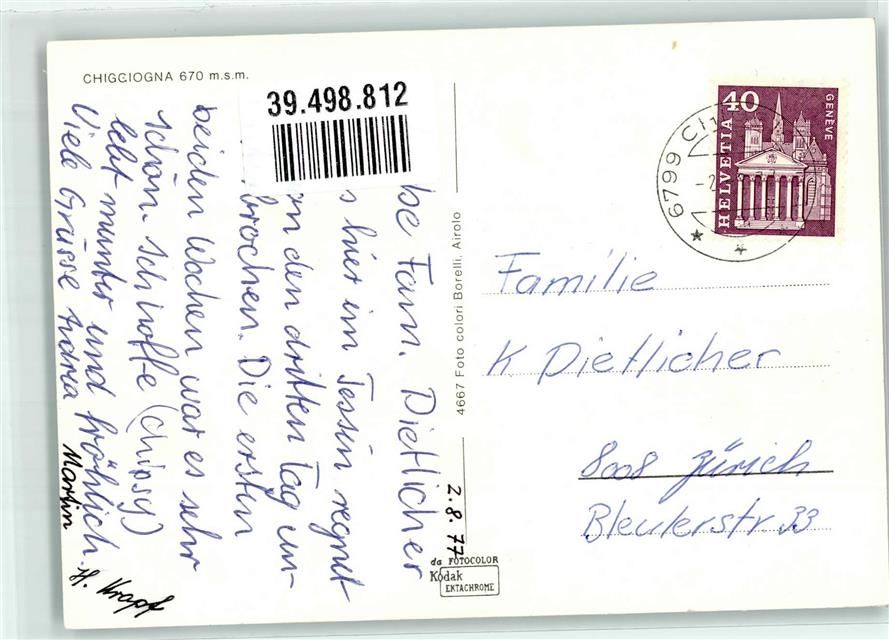 CHIGGIOGNA 670 m.s.m.
39.498.812
be Fam. Dietlicher
s hier im Tessin regnet
en den dritten Tag un-
brochen. Die ersten
beiden Wochen war es sehr
schön. (Chipsy)
lebt munter und fröhlich.
Viele Grüsse
Martin
H. Krapf
2.8.77
4667 Foto colori Borelli, Airolo
da FOTOCOLOR
Kodak
EKTACHROME
HELVETIA
40
GENÈVE
6799 C
Familie
K Dietlicher
8008 Zürich
Bleulerstr. 33